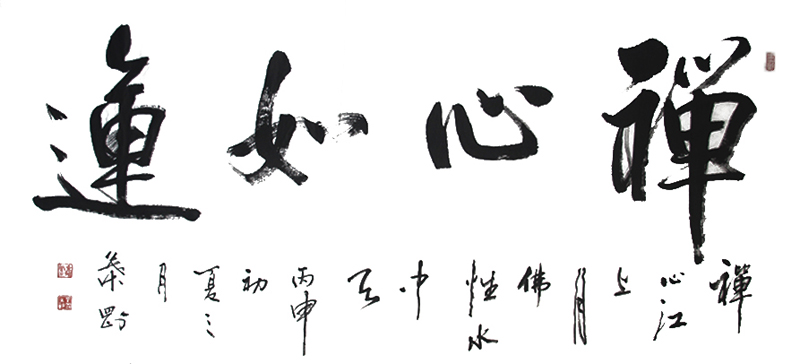 禪心如蓮
禪心江上月佛性水中天丙申初夏之月